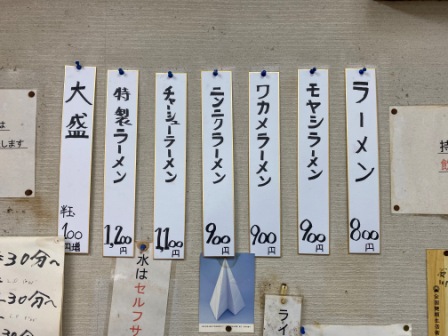 ラーメン
800円
モヤシラーメン
900円
ワカメラーメン
900円
ニンニクラーメン
900円
チャーシューラーメン
1,100円
特製ラーメン
1,200円
大盛
半玉
100円増
は
します
30分へ
30分へ
30分
水はセルフサ
ライ
特